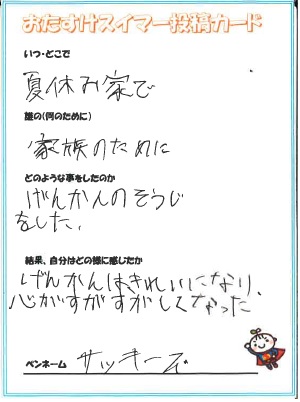 おたすけスイマー投稿カード
いつ・どこで
夏休み家で
誰の(何のために)
家族のために
どのような事をしたのか
げんかんのそうじ
をした。
結果、自分はどの様に感じたか
げんかんはきれいになり、
心がすがすがしくなった
ペンネーム サッキーズ